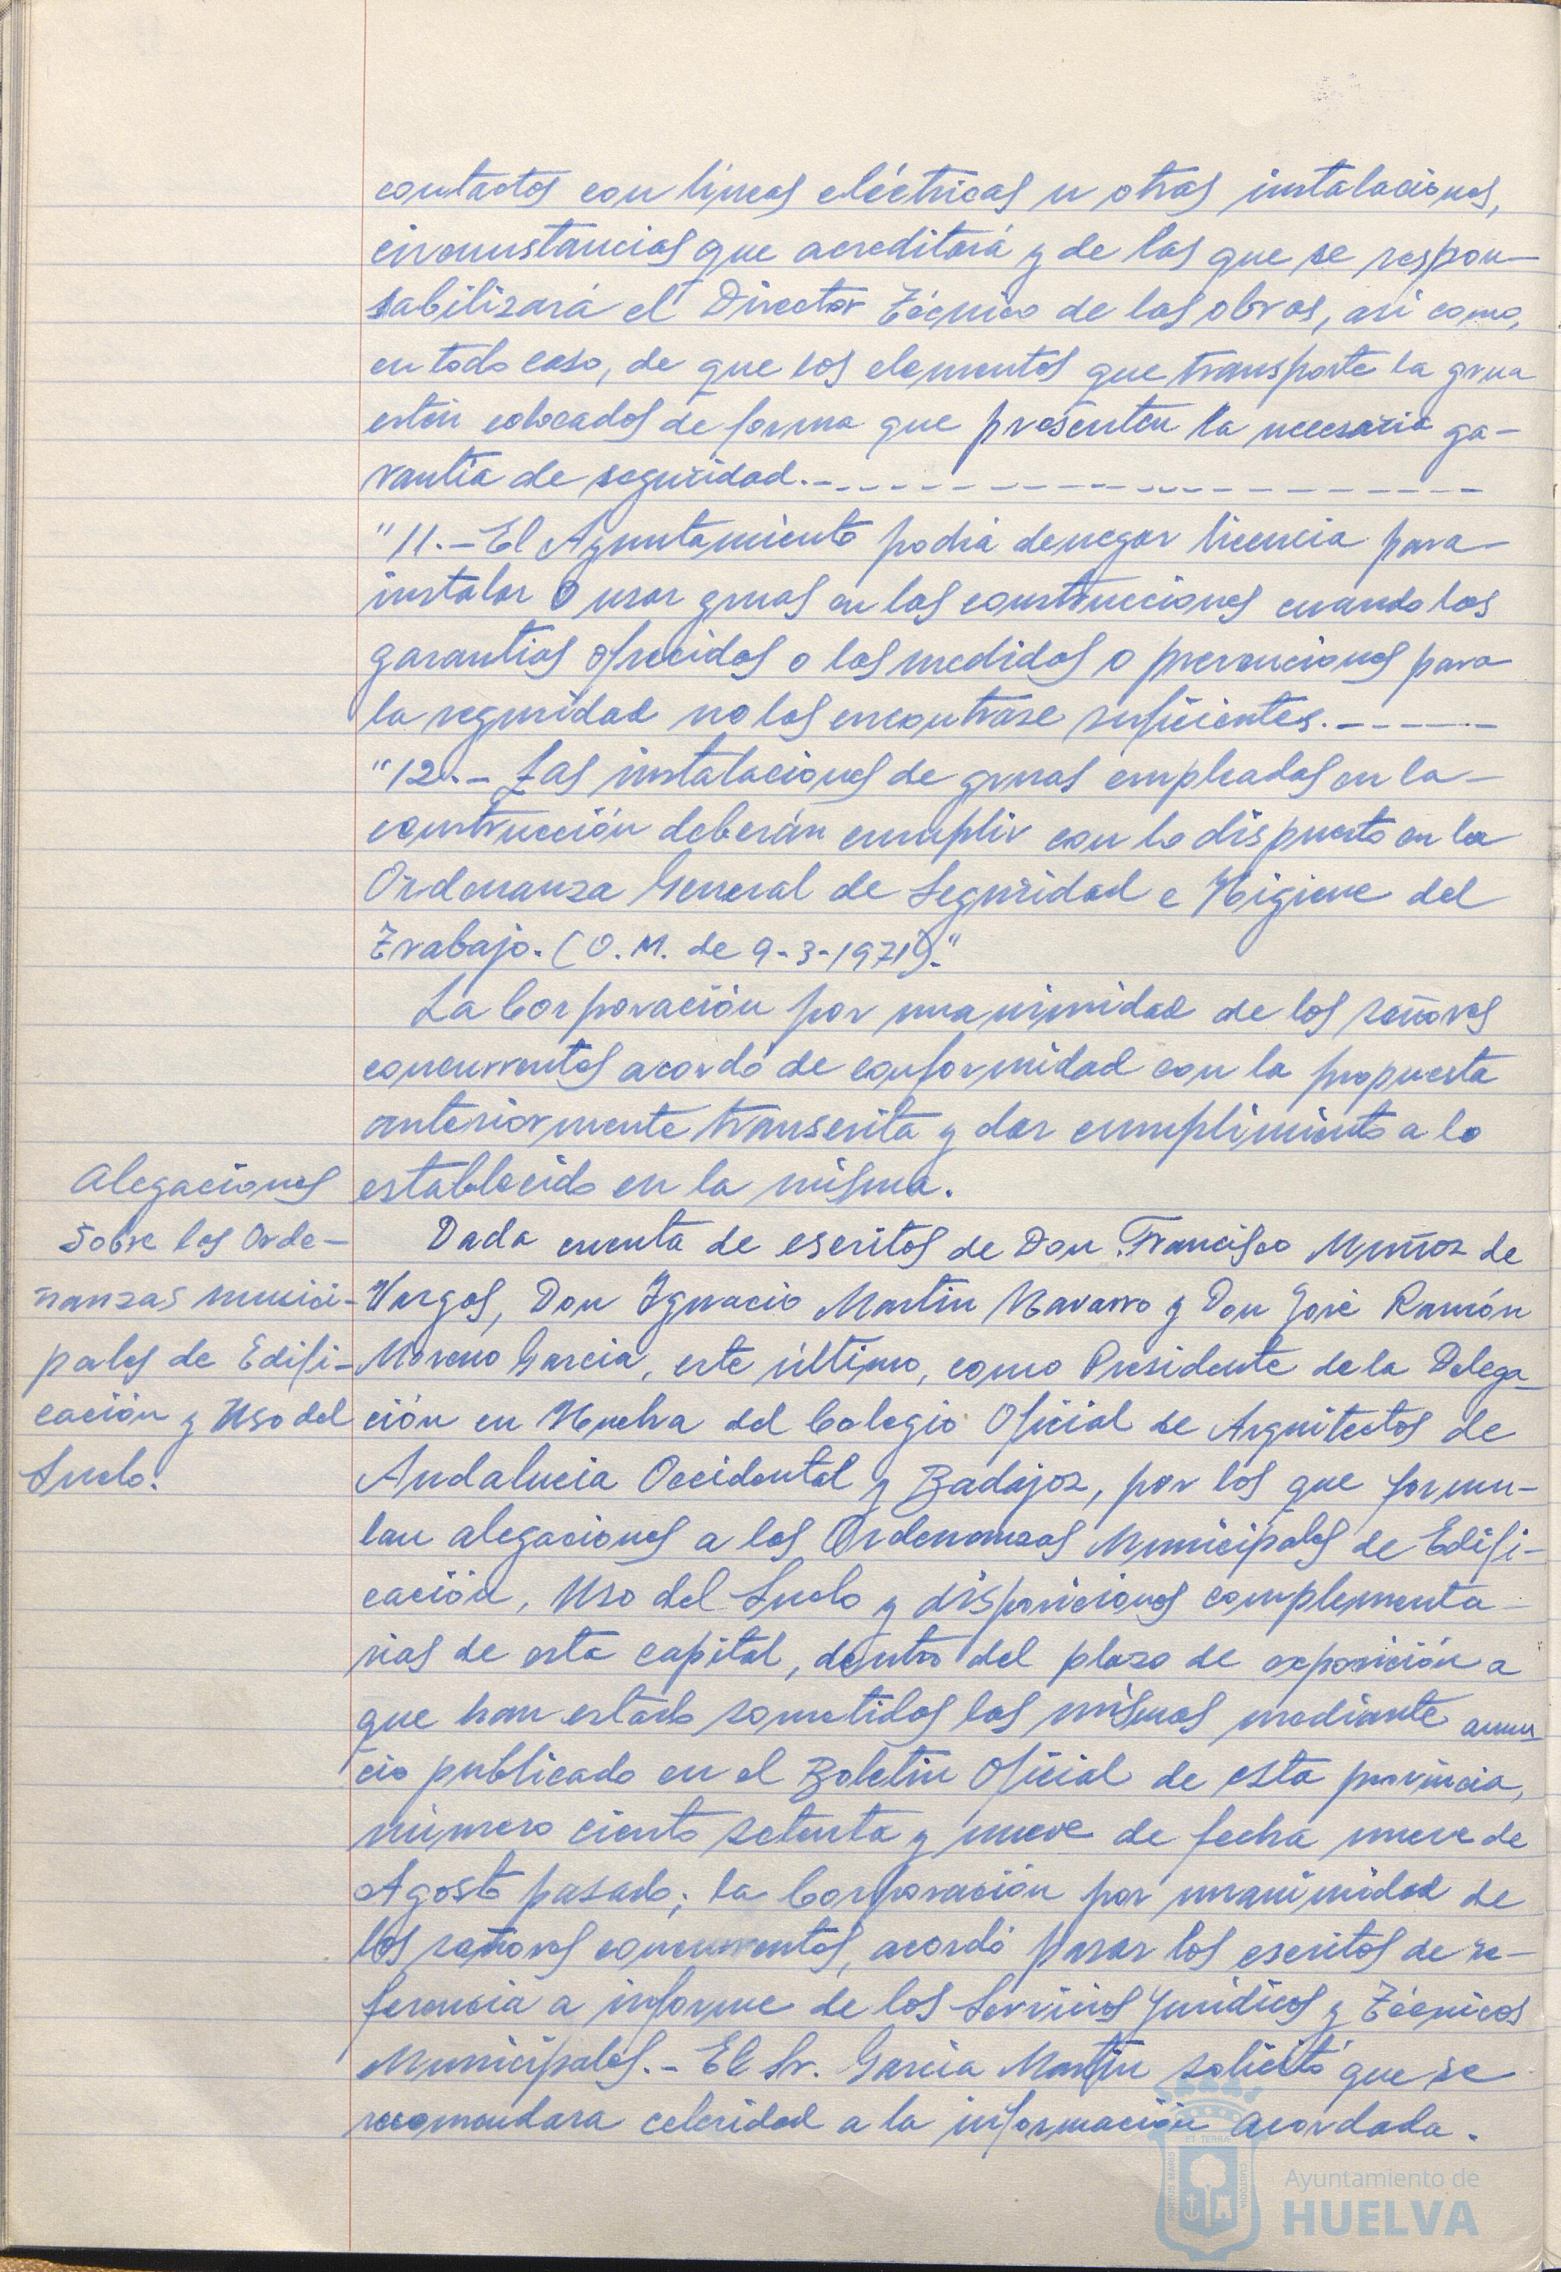 contactos con líneas eléctricas u otras instalaciones,
circunstancias que acreditará y de las que se respon-
sabilizará el Director Técnico de las obras, así como,
en todo caso, de que los elementos que transporte la grua
estén colocados de forma que presenten la necesaria ga-
rantía de seguridad.-
"11.- El Ayuntamiento podrá denegar licencia para
instalar o usar gruas en las construcciones cuando las
garantias ofrecidas o las medidas o prevenciones para
la seguridad no las encontrase suficientes.-
"12.- Las instalaciones de gruas empleadas en la
construcción deberán cumplir con lo dispuesto en la
Ordenanza General de Seguridad e Higiene del
Trabajo. (O.M. de 9-3-1971)."
La Corporación por unanimidad de los señores
concurrentes acordó de conformidad con la propuesta
anteriormente transcrita y dar cumplimiento a lo
establecido en la misma.
Alegaciones
sobre las Orde-
nanzas munici-
pales de Edifi-
cación y Uso del
Suelo.
Dada cuenta de escritos de Don Francisco Muñoz de
Vargas, Don Ignacio Martin Navarro y Don José Ramón
Moreno Garcia, este último, como Presidente de la Delega-
ción en Huelva del Colegio Oficial de Arquitectos de
Andalucia Occidental y Badajoz, por los que formu-
lan alegaciones a las Ordenanzas Municipales de Edifi-
cación, Uso del Suelo y disposiciones complementa-
rias de esta capital, dentro del plazo de exposición a
que han estado sometidas las mismas mediante anun-
cio publicado en el Boletin Oficial de esta provincia,
número ciento setenta y nueve de fecha nueve de
Agosto pasado; la Corporación por unanimidad de
los señores concurrentes, acordó pasar los escritos de re-
ferencia a informe de los Servicios Jurídicos y Técnicos
Municipales.- El Sr. Garcia Martin solicitó que se
recomendara celeridad a la información acordada.
Ayuntamiento de
HUELVA